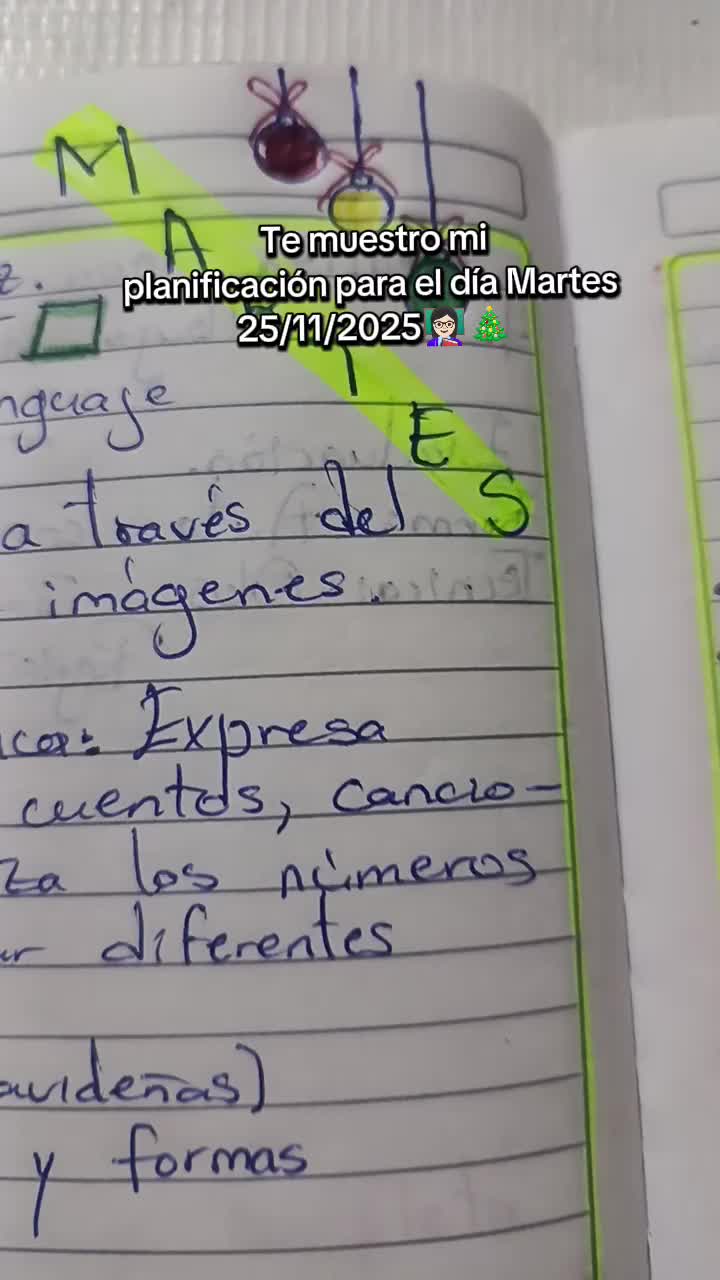 MARTES
Te muestro mi
planificación para el día Martes
25/11/2025👩🏻‍🏫🎄
z.
nguaje
a través del
imágenes.
ica: Expresa
cuentos, cancio-
za los números
ur diferentes
avideñas)
y formas